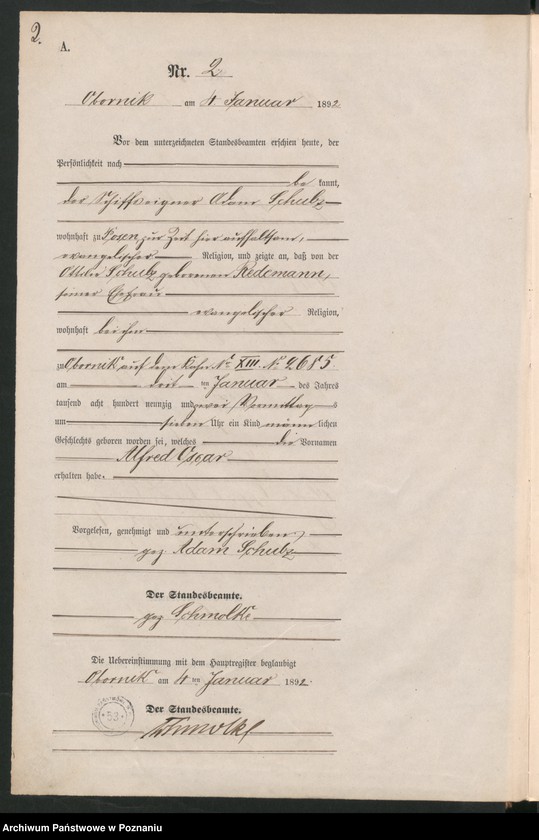 2.
A.
Nr. 2
Obornik am 4 Januar 1892
Vor dem unterzeichneten Standesbeamten erschien heute, der
Persönlichkeit nach
be kannt,
der Schiffseigner Adam Schulz
wohnhaft zu Posen, zur Zeit hier aufhaltsam,
evangelischer Religion, und zeigte an, daß von der
Ottilie Schulz geborenen Redemann,
seiner Ehefrau
evangelischer Religion,
wohnhaft bei ihm
zu Obornik auf dem Kahn Nr XIII No 2685
am drit ten Januar des Jahres
tausend acht hundert neunzig und zwei Vormittags
um sieben Uhr ein Kind männlichen
Geschlechts geboren worden sei, welches die Vornamen
Alfred Oscar
erhalten habe.
Vorgelesen, genehmigt und unterschrieben
gez Adam Schulz
Der Standesbeamte.
gez Schmolke
Die Uebereinstimmung mit dem Hauptregister beglaubigt
Obornik am 4 ten Januar 1892.
Der Standesbeamte.
53
Schmolke
Archiwum Państwowe w Poznaniu